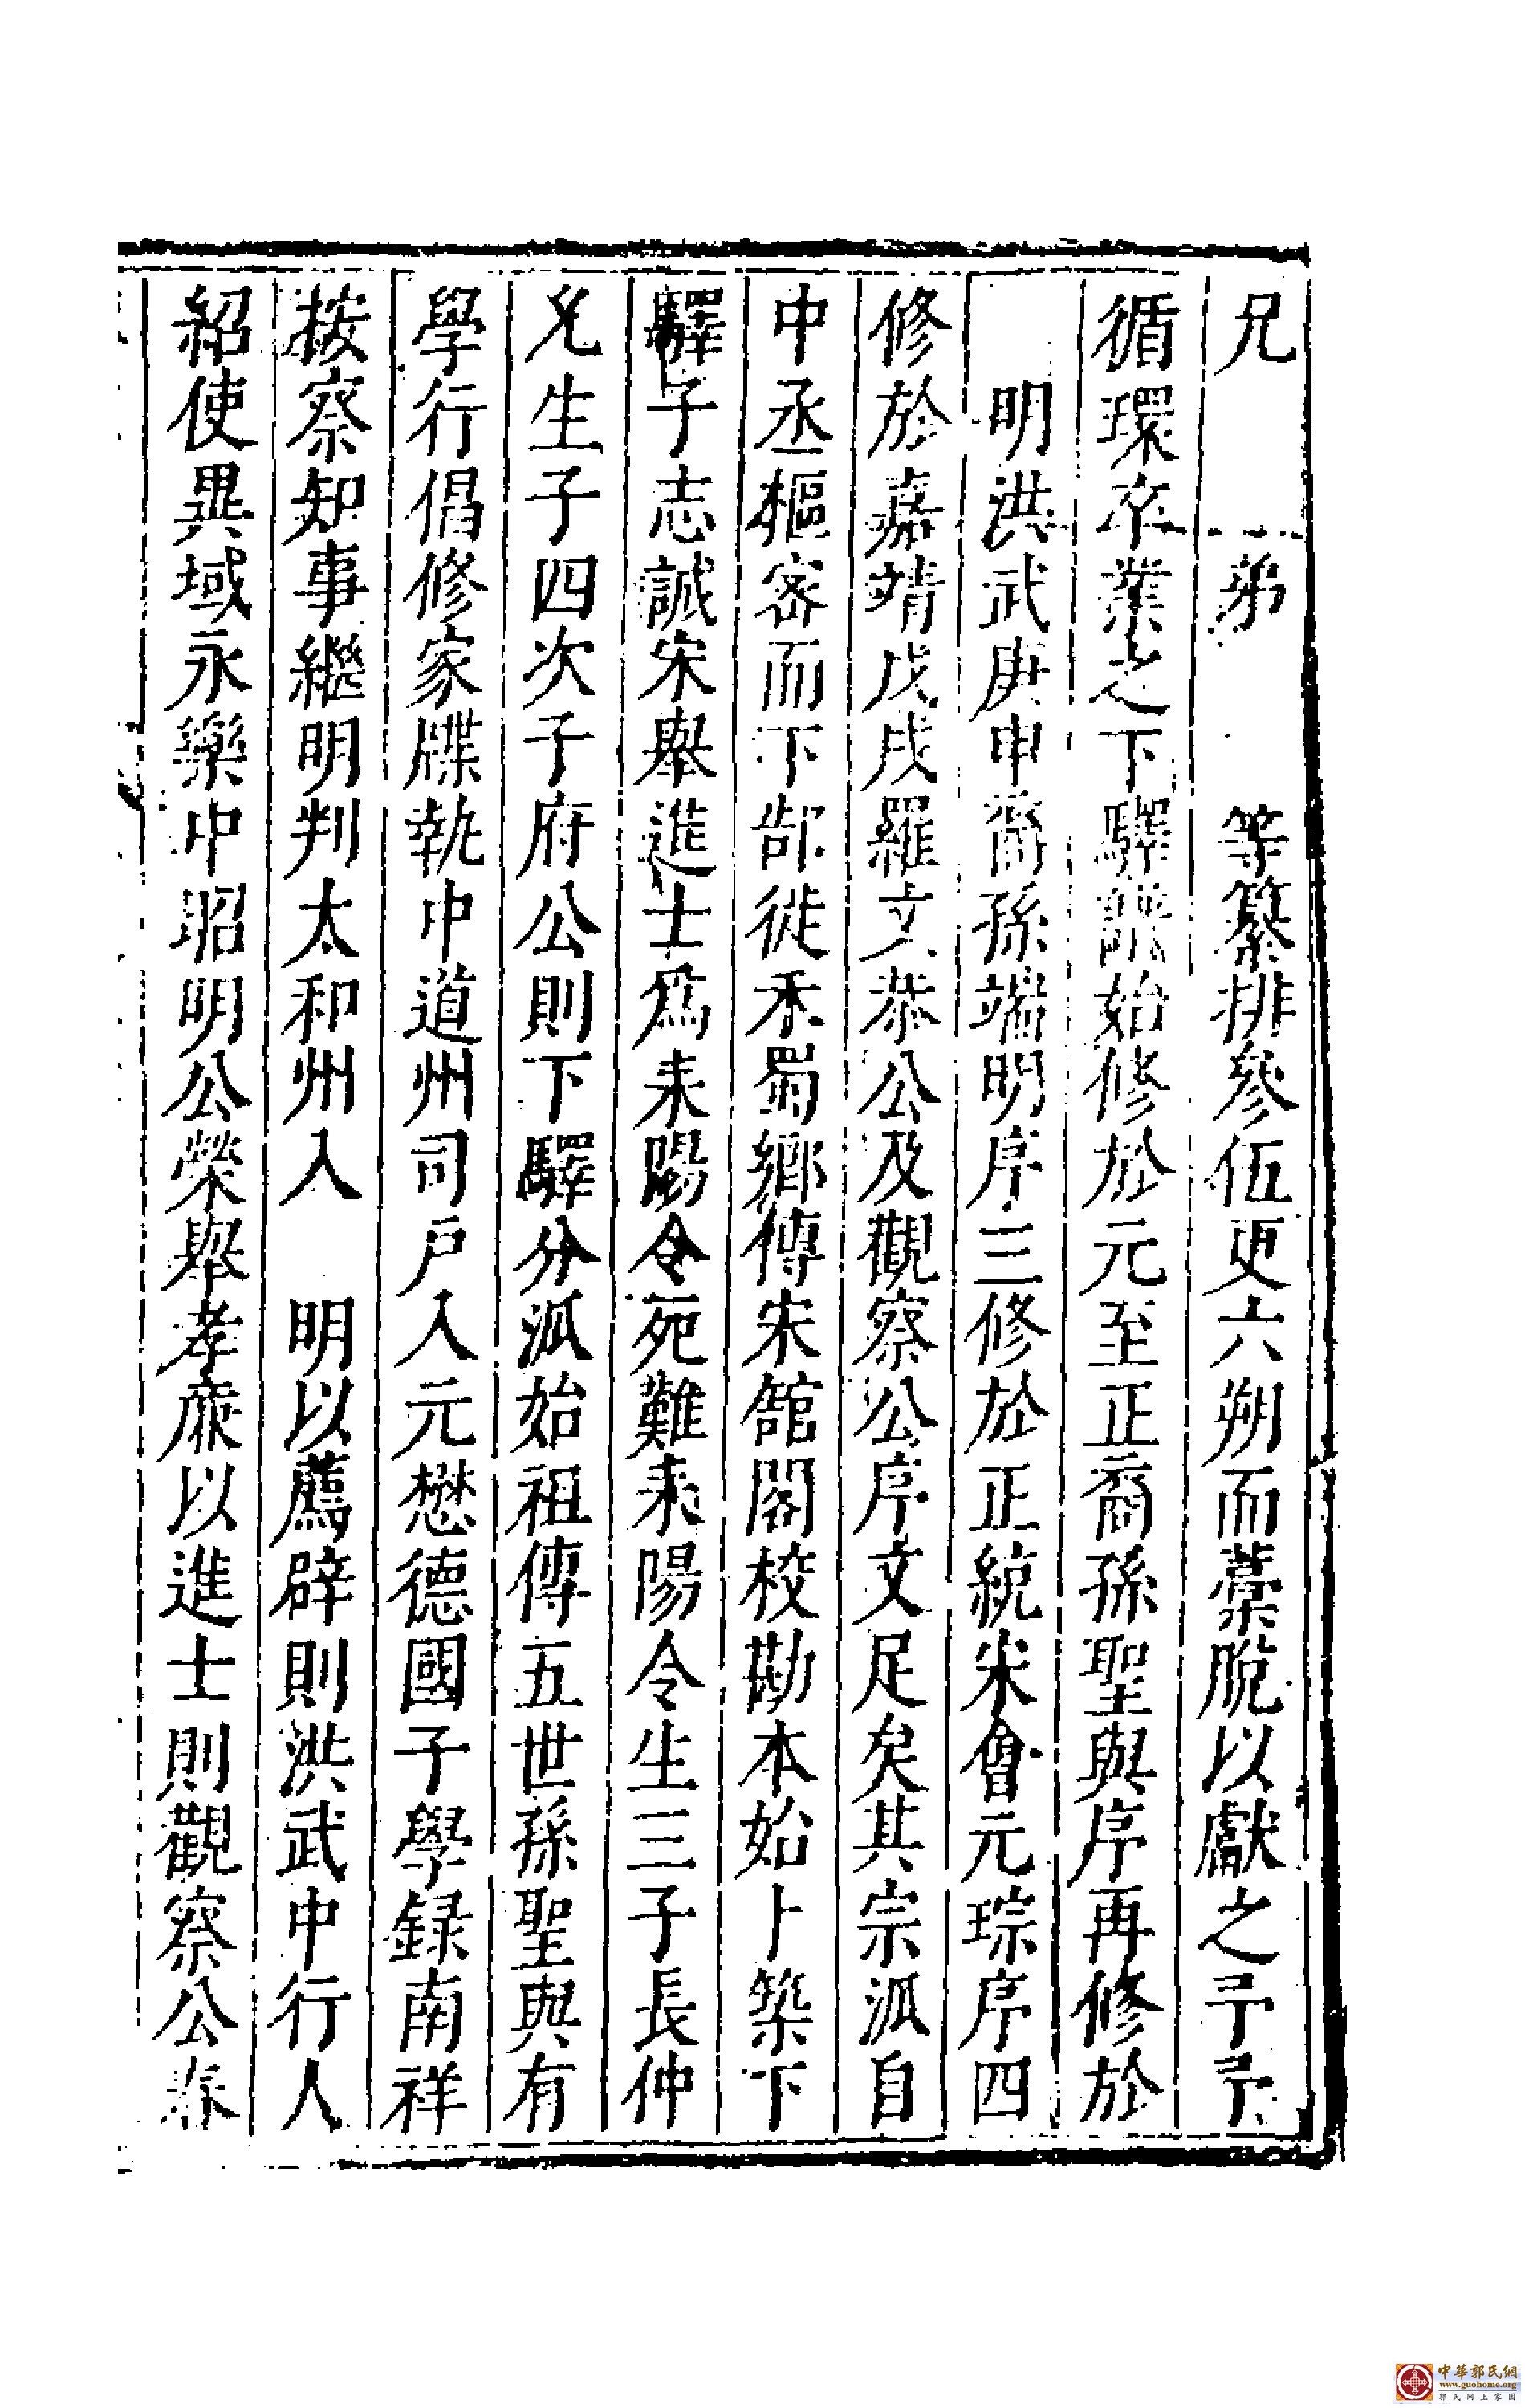 兄　弟　等纂排參伍更六朔而藳脫以獻之予予
循環卒業之下驛譜始修於元至正裔孫聖與序再修於
明洪武庚申裔孫端明序三修於正統宋會元琮序四
修於嘉靖戊戌羅文恭公及觀察公序文足矣其宗派自
中丞樞密而下郜徙禾蜀鄉傳宋舘閣校勘本始卜築下
驛子志誠宋舉進士爲耒陽令死難耒陽令生三子長仲
允生子四次子府公則下驛分派始祖傳五世孫聖與有
學行倡修家牒執中道州司戶入元懋德國子學録南祥
按察知事繼明判太和州入　明以薦辟則洪武中行人
紹使異域永樂中昭明公榮舉孝廉以進士則觀察公春
中華郭氏網
www.guohome.org
郭氏网上家园